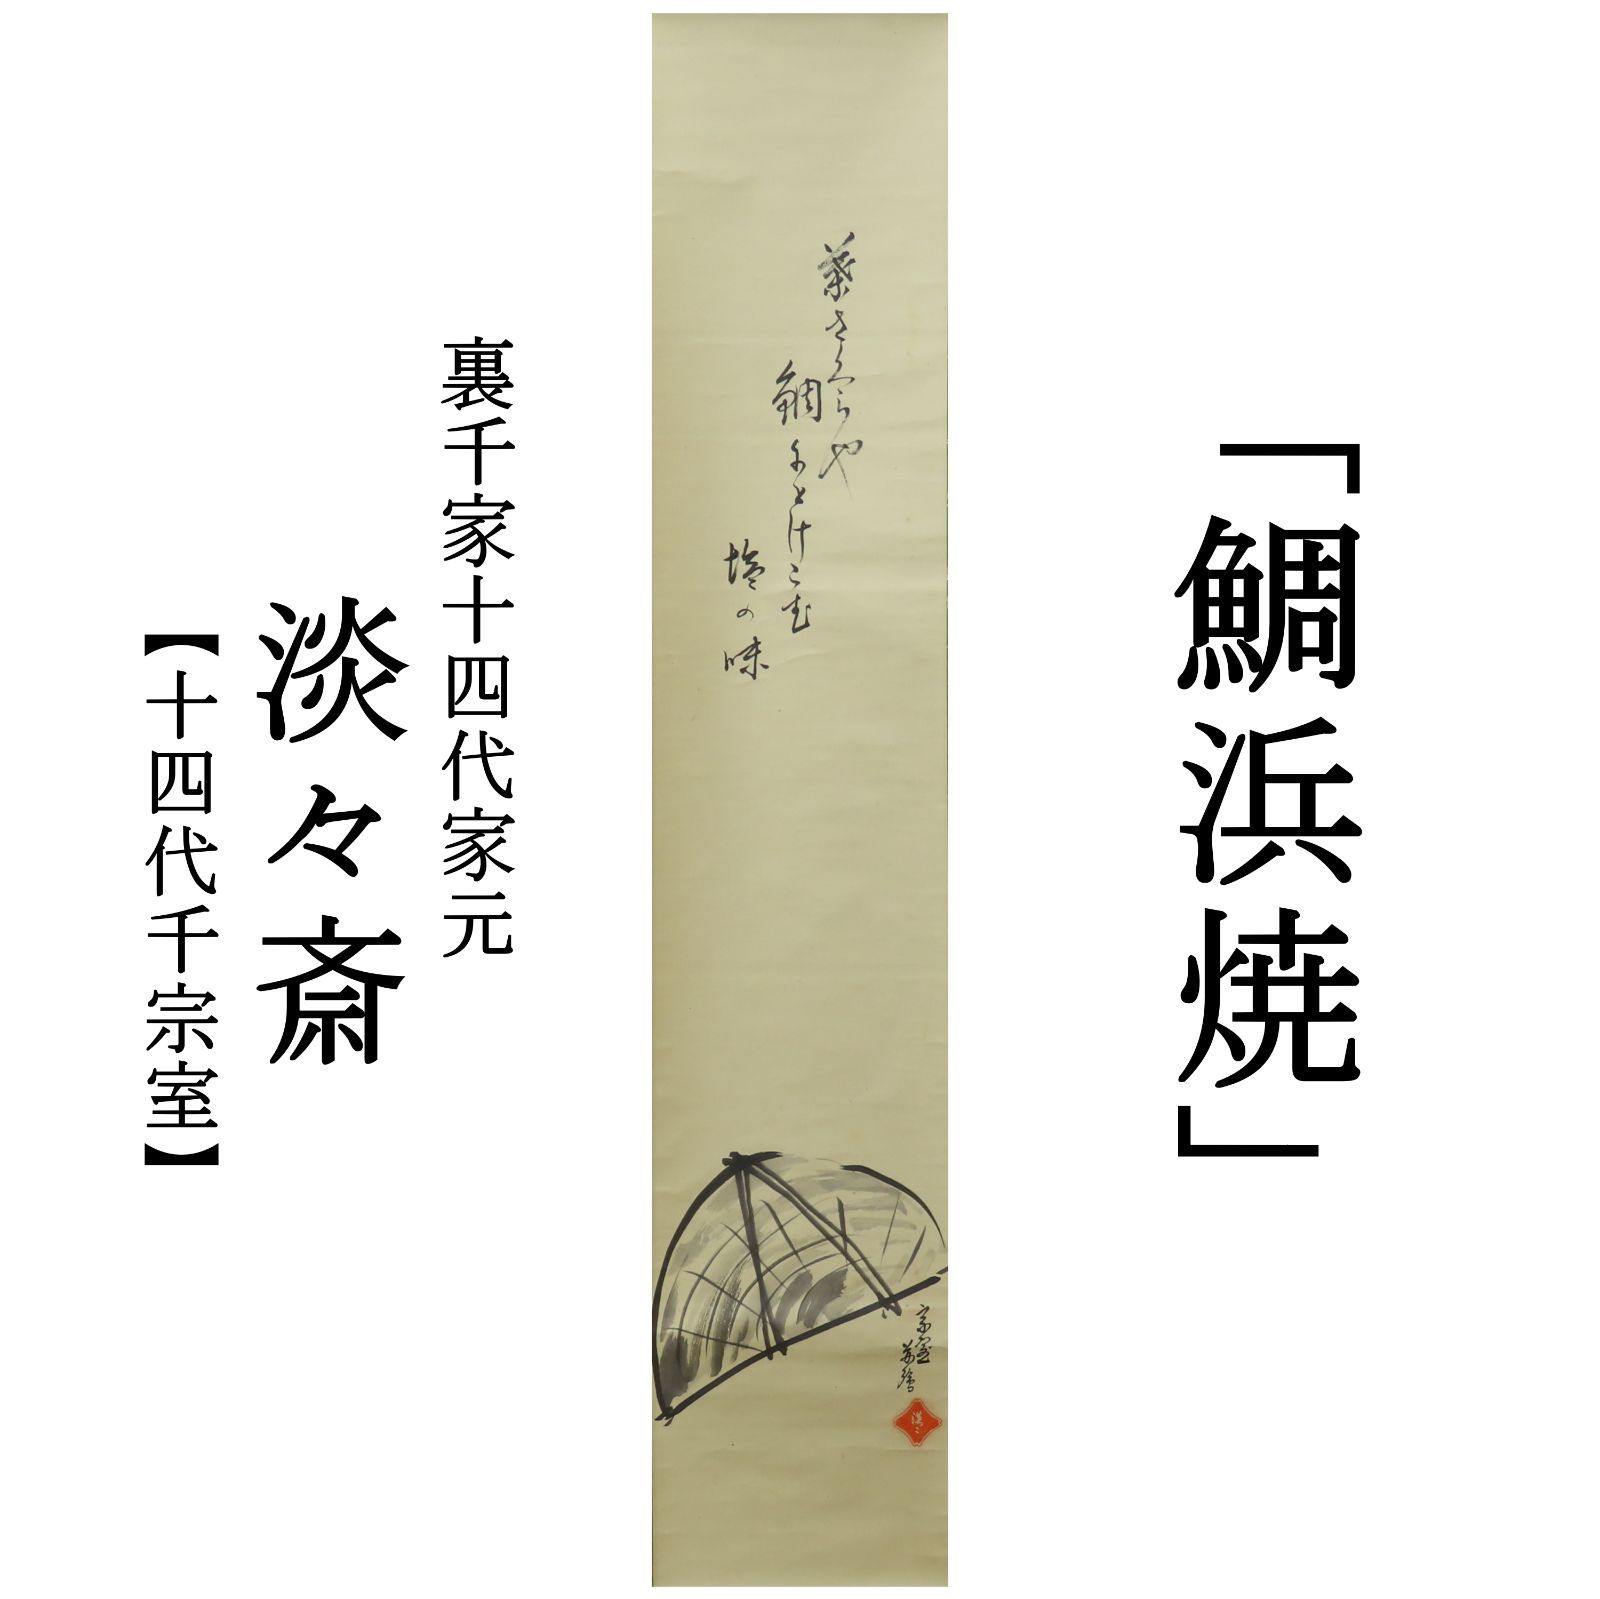 「鯛浜焼」
葉さくらや
鯛にとけこむ
塩の味
宗室
裏千家十四代家元
淡々斎
【十四代千宗室】